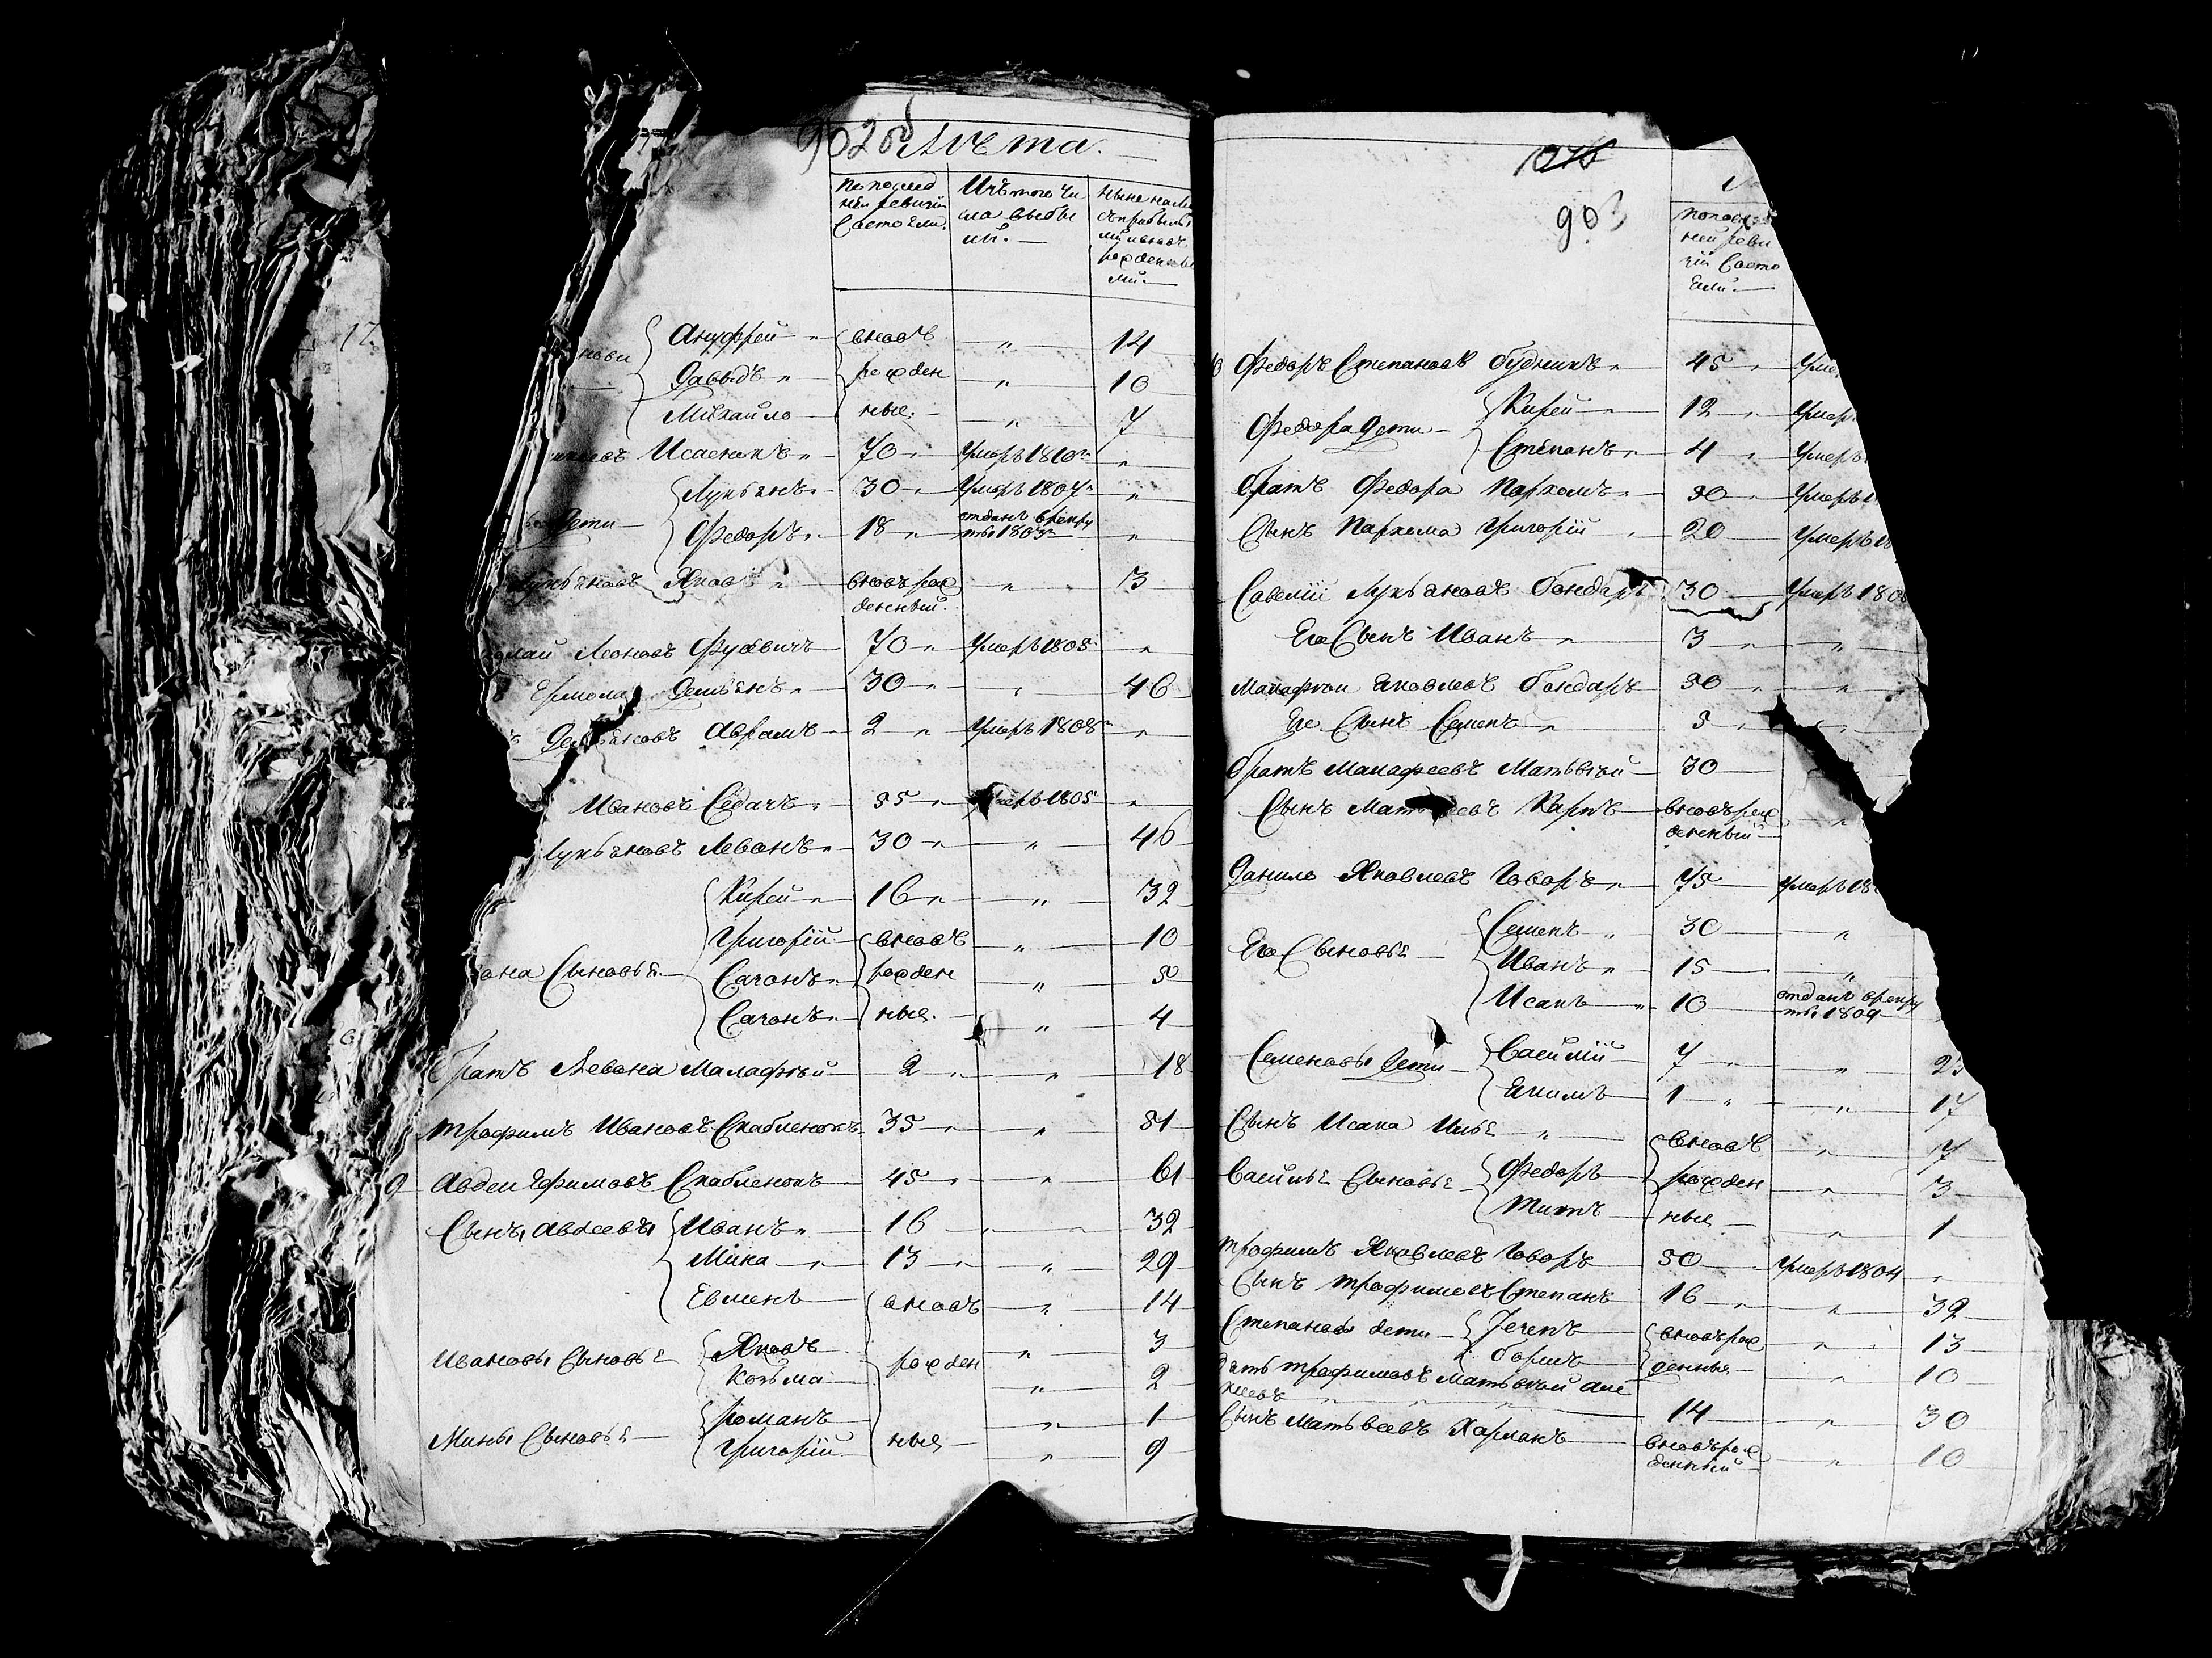 902 об Лѣта.
по послед ней ревизіи Состояли. Изъ того чи сла выбы ли. ныне на ли съ прибылы ми и вновь рожденны ми.
нови Ануфрей вновь " 14
Давыдъ рожден " 10
Михайло ные. " 7
Исаенокъ 70 Умеръ 1810 "
Лукьянъ 30 Умеръ 1807 "
Дети Федоръ 18 отданъ врекру ты 1803 "
Лукьяновъ Яковъ вновь рож денный " 3
Леоновъ 70 Умеръ 1805 "
Ермола Демьянъ 30 " 46
Демьяновъ Аврамъ 2 Умеръ 1808 "
Ивановъ Седачъ 85 Умеръ 1805 "
Лукьяновъ Леванъ 30 " 46
Кирей 16 " 32
Григорій вновь " 10
Сыновья Сазонъ рожден "
Сазонъ ные. " 4
Братъ Левона Малафей 2 " 18
Трофимъ Ивановъ Скабленокъ 35 " 51
9 Авдей Ефимовъ Скабленокъ 45 " 61
Сыны Авдеевы Иванъ 16 " 32
Мина 13 " 29
Евменъ вновь " 14
Ивановы Сыновья Яковъ " 3
Козьма рожден " 2
Мины Сыновья Романъ " 1
Григорій ные " 9
903
по послед ней реви зіи Состо яли.
Федоръ Степановъ Будникъ 45
Федора Дети Кирей 12 Умер
Степанъ 4 Умеръ
Братъ Федора Пархомъ 30 Умеръ
Сынъ Пархома Григорій 20 Умеръ
Савелій Лукьяновъ Бондарь 30 Умеръ 180
Его Сынъ Иванъ 3 "
Малафей Яковлевъ Бондарь 30 "
Его Сынъ Семенъ 5
Братъ Малафеевъ Матьвей 30
Сынъ Матвеевъ Карпъ вновь рож денный "
Данило Яковлевъ Говоръ 75 Умеръ 18
Его Сыновья Семенъ 30 "
Иванъ 15 "
Исакъ 10 отданъ врекру ты 1809
Семеновы Дети Василій 7 " 23
Екимъ 1 " 17
Сынъ Исака Илья вновь " 7
Василья Сыновья Федоръ рожден " 3
Титъ ные " 1
Трофимъ Яковлевъ Говоръ 50 Умеръ 1804 "
Сынъ Трофимовъ Степанъ 16 " 32
Степановы дети вновь рож " 13
Борисъ денные " 10
Трофимовъ Матьвей Але
кеевъ 14 " 30
Сынъ Матьвеевъ Харланъ вновь рож денный " 10